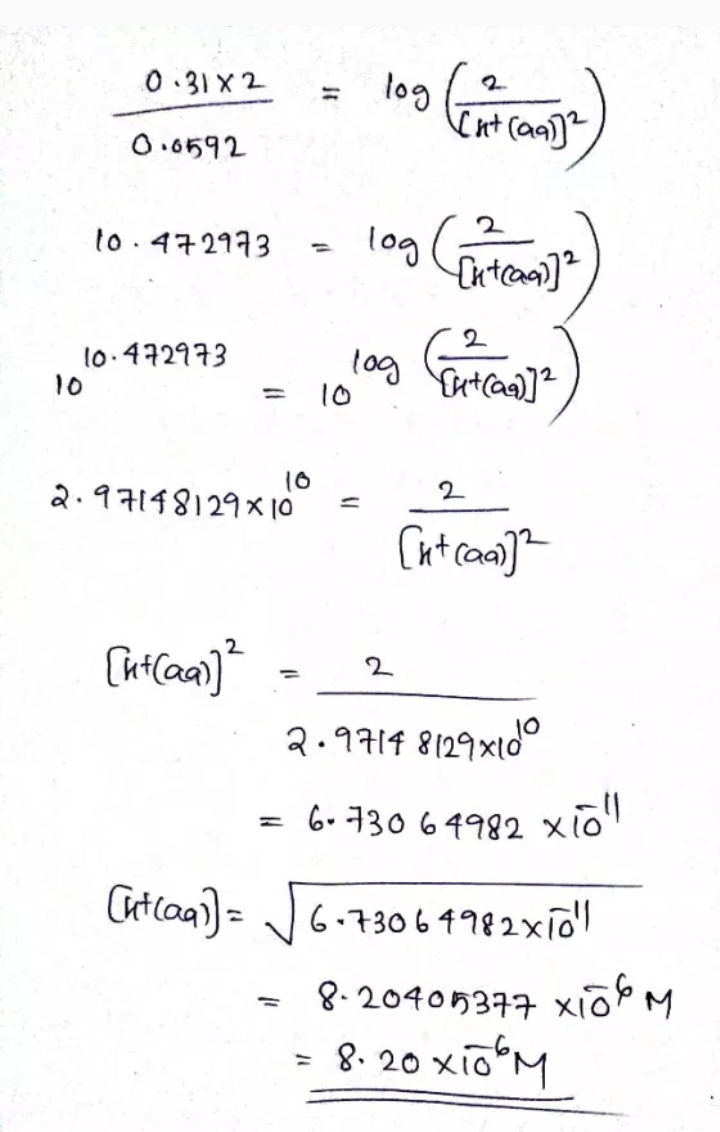 0.31 × 2 / 0.0592 = log (2 / [H+(aq)]²)
10.472973 = log (2 / [H+(aq)]²)
10^10.472973 = 10^log (2 / [H+(aq)]²)
2.97148129 × 10^10 = 2 / [H+(aq)]²
[H+(aq)]² = 2 / 2.97148129 × 10^10
= 6.73064982 × 10^-11
[H+(aq)] = √6.73064982 × 10^-11
= 8.20405377 × 10^-6 M
= 8.20 × 10^-6 M